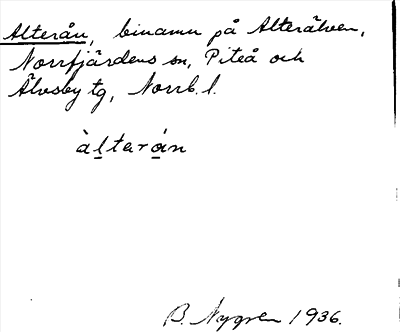 Alterån, binamn på Alterälven,
Norrfjärdens sn, Piteå och
Älvsby tg, Norrb. l.
àl̲tarå̲n
B. Nygren 1936.